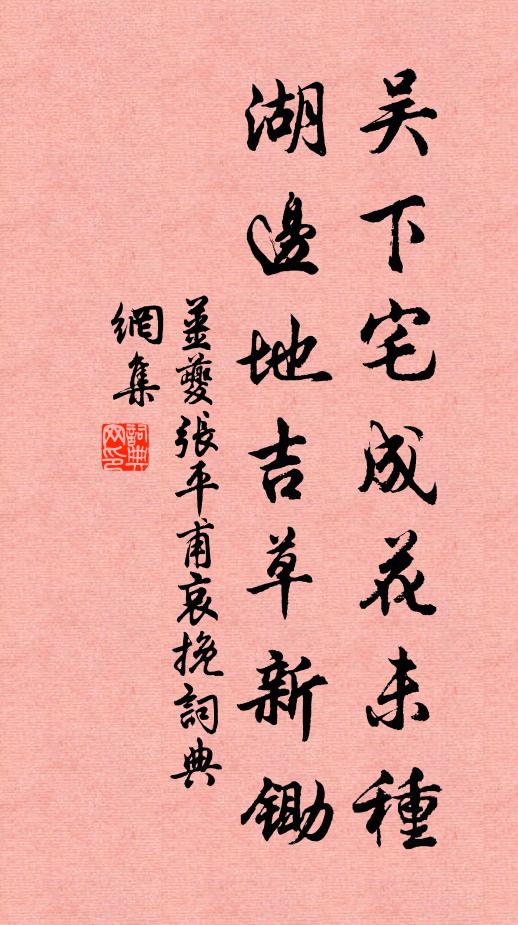 吴下宅成花未種
湖邊地吉草新鋤
姜夔張平甫哀挽詞典
網集
詞典網印